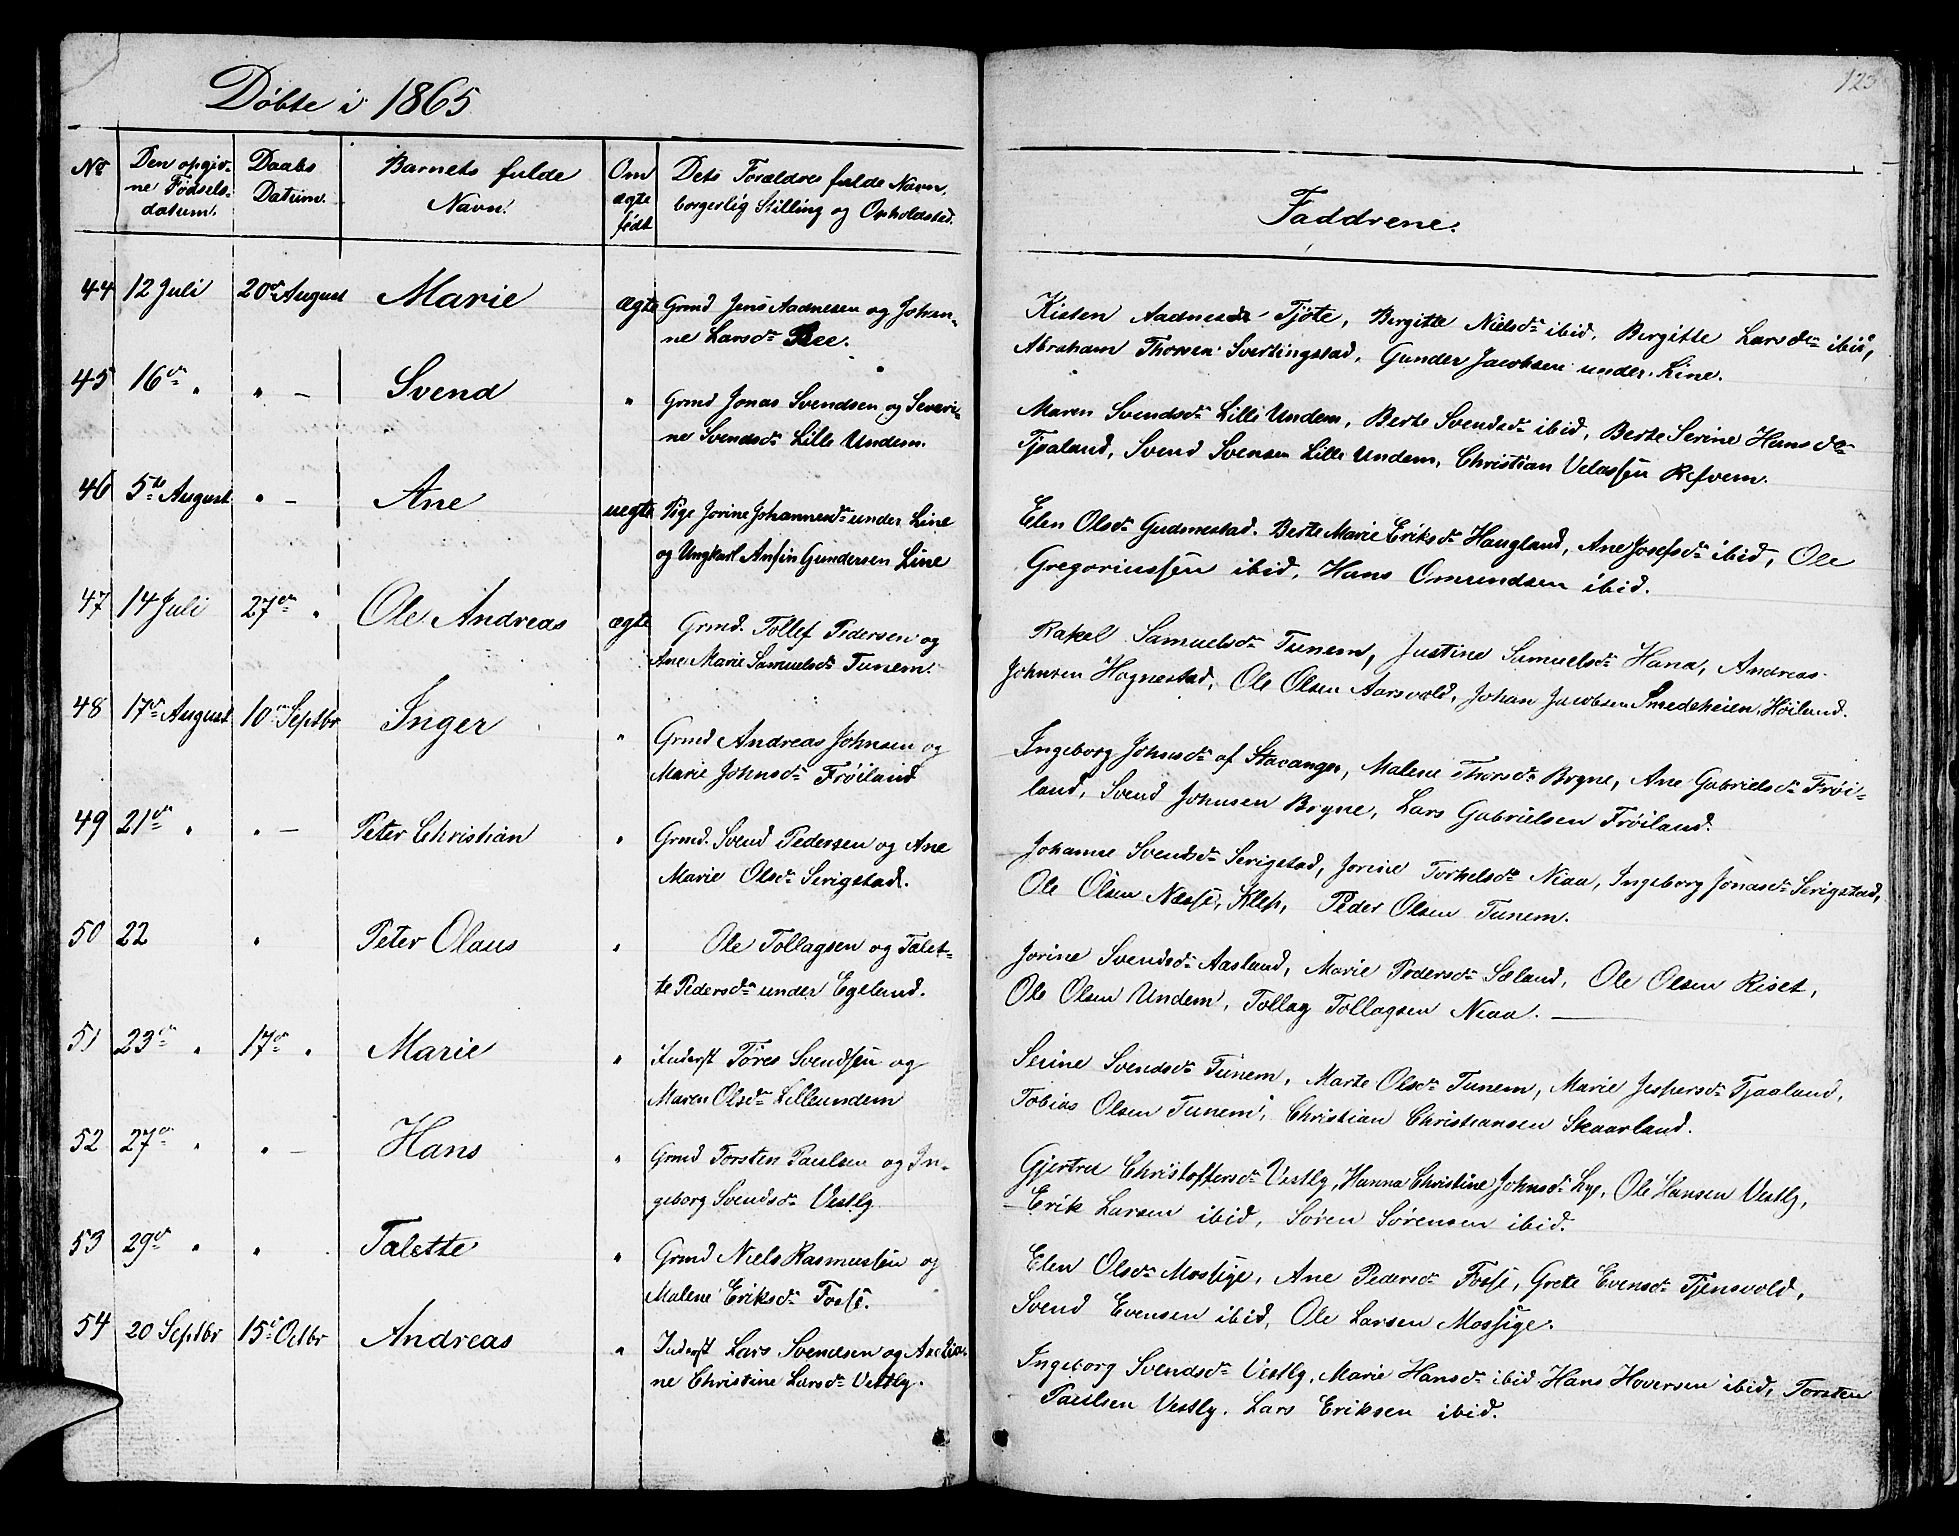 123
Döbte i 1865
No
Den opgiv-
ne Födsels-
datum.
Daabs
Datum.
Barnets fulde
Navn.
Om
ægte
födt
Dets Forældres fulde Navn,
borgerlig Stilling og Opholdsted.
Faddrene.
44 12 Juli 20de August Marie ægte Grmd Jens Aadnesen og Johan-
ne Larsdr Ree.
Kisten Aadnesdr Tjöte, Bergitte Nielsdr ibid, Bergitte Larsdr ibid,
Abraham Thorsen Svertingstad, Gunder Jacobsen under Line.
45 16de " " – Svend " Grmd Jonas Svendsen og Severi-
ne Svendsdr Lille Undem.
Maren Svendsdr Lille Undem, Berte Svendsdr ibid, Berte Serine Hansdr
Tjaaland, Svend Svensen Lille Undem, Christian Velassen Refvem.
46 5te August " – Ane uegte Pige Jorine Johannesdr under Line
og Ungkarl Ansin Gundersen Line
Elen Olsdr Gudmestad. Berte Marie Eriksdr Haugland, Ane Josefsdr ibid, Ole
Gregoriussen ibid, Hans Omundsen ibid.
47 14 Juli 27de " Ole Andreas ægte Grmd. Tollef Pedersen og
Ane Marie Samuelsdr Tunem.
Rakel Samuelsdr Tunem, Justine Samuelsdr Hana, Andreas
Johnsen Hognestad, Ole Olsen Aarsvold, Johan Jacobsen Smedeheien, Höiland.
48 17de August 10de Septbr Inger " Grmd Andreas Johnsen og
Marie Johnsdr Fröiland
Ingeborg Johnsdr af Stavanger, Malene Thorsdr Bryne, Ane Gabrielsdr Fröi-
land, Svend Johnsen Bryne, Lars Gabrielsen Fröiland.
49 21de " " – Peter Christian " Grmd. Svend Pedersen og Ane
Marie Olsdr Serigstad.
Johanne Svendsdr Serigstad, Jorine Torkelsdr Niaa, Ingeborg Jonasdr Serigstad,
Ole Olsen Næsse, Klep, Peder Olsen Tunem.
50 22 " Peter Olaus " Ole Tollagsen og Talet-
te Pedersdr under Egeland.
Jorine Svendsdr Aasland, Marie Pedersdr Sæland, Ole Olsen Riset,
Ole Olsen Undem, Tollag Tollagsen Niaa. —
51 23de " 17de " Marie " Inderst Töres Svendsen og
Maren Olsdr Lilleundem
Serine Svendsdr Tunem, Marte Olsdr Tunem, Marie Jespersdr Tjaaland,
Tobias Olsen Tunem, Christian Christiansen Skaarland.
52 27de " " – Hans " Grmd Torsten Paulsen og In-
geborg Svendsdr Vestly
Gjertrud Christoffersdr Vestly, Hanna Christine Johnsdr Lye, Ole Hansen Vestly,
Erik Larsen ibid, Sören Sörensen ibid.
53 29de " " Talette " Grmd Niels Rasmussen og
Malene Eriksdr Fosse.
Elen Olsdr Mossige, Ane Pedersdr Fosse, Grete Evensdr Tjensvold,
Svend Evensen ibid, Ole Larsen Mossige.
54 20 Septbr 15de Octbr Andreas " Inderst Lars Svendsen og
ne Christine Larsdr Vestly.
Ingeborg Svendsdr Vestly, Marie Hansdr ibid Hans Hoversen ibid, Torsten
Paulsen Vestly. Lars Eriksen ibid.